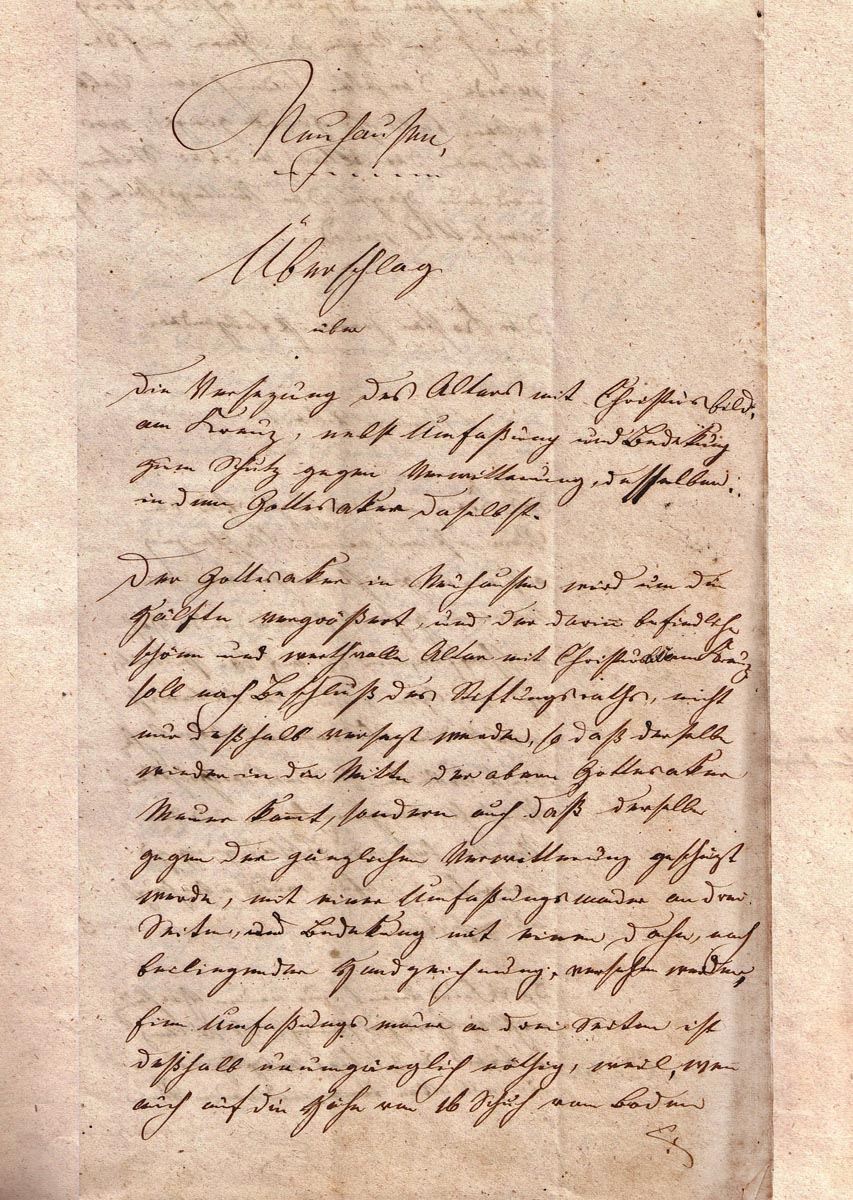 Neuhausen,
Überschlag
über
die Versezung des Altars mit Christusbild,
am Kreuz, nebst Umfaßung und Bedekung
zum Schutz gegen Verwitterung, desselben.
in dem Gottesaker daselbst.
Der Gottesaker in Neuhausen wird um die
Hälfte vergrößert, und der darin befindliche
schöne und werthvolle Altar mit Christus am Kreuz
soll nach Beschluß des Stiftungsraths, nicht
nur deßhalb versezt werden, so daß derselbe
wieder in die Mitte der obern Gottesaker
Mauer komt, sondern auch daß derselbe
gegen der gänzlichen Verwitterung geschüzt
werde, mit einer Umfaßungsmauer an drei
Seiten, und Bedekung mit einem Dache, nach
beiliegender Handzeichnung, versehen werden,
Eine Umfaßungsmauer an drei Seiten ist
deßhalb unumgänglich nöthig, weil, wen
auch auf die Höhe von 16 Schuh vom Boden